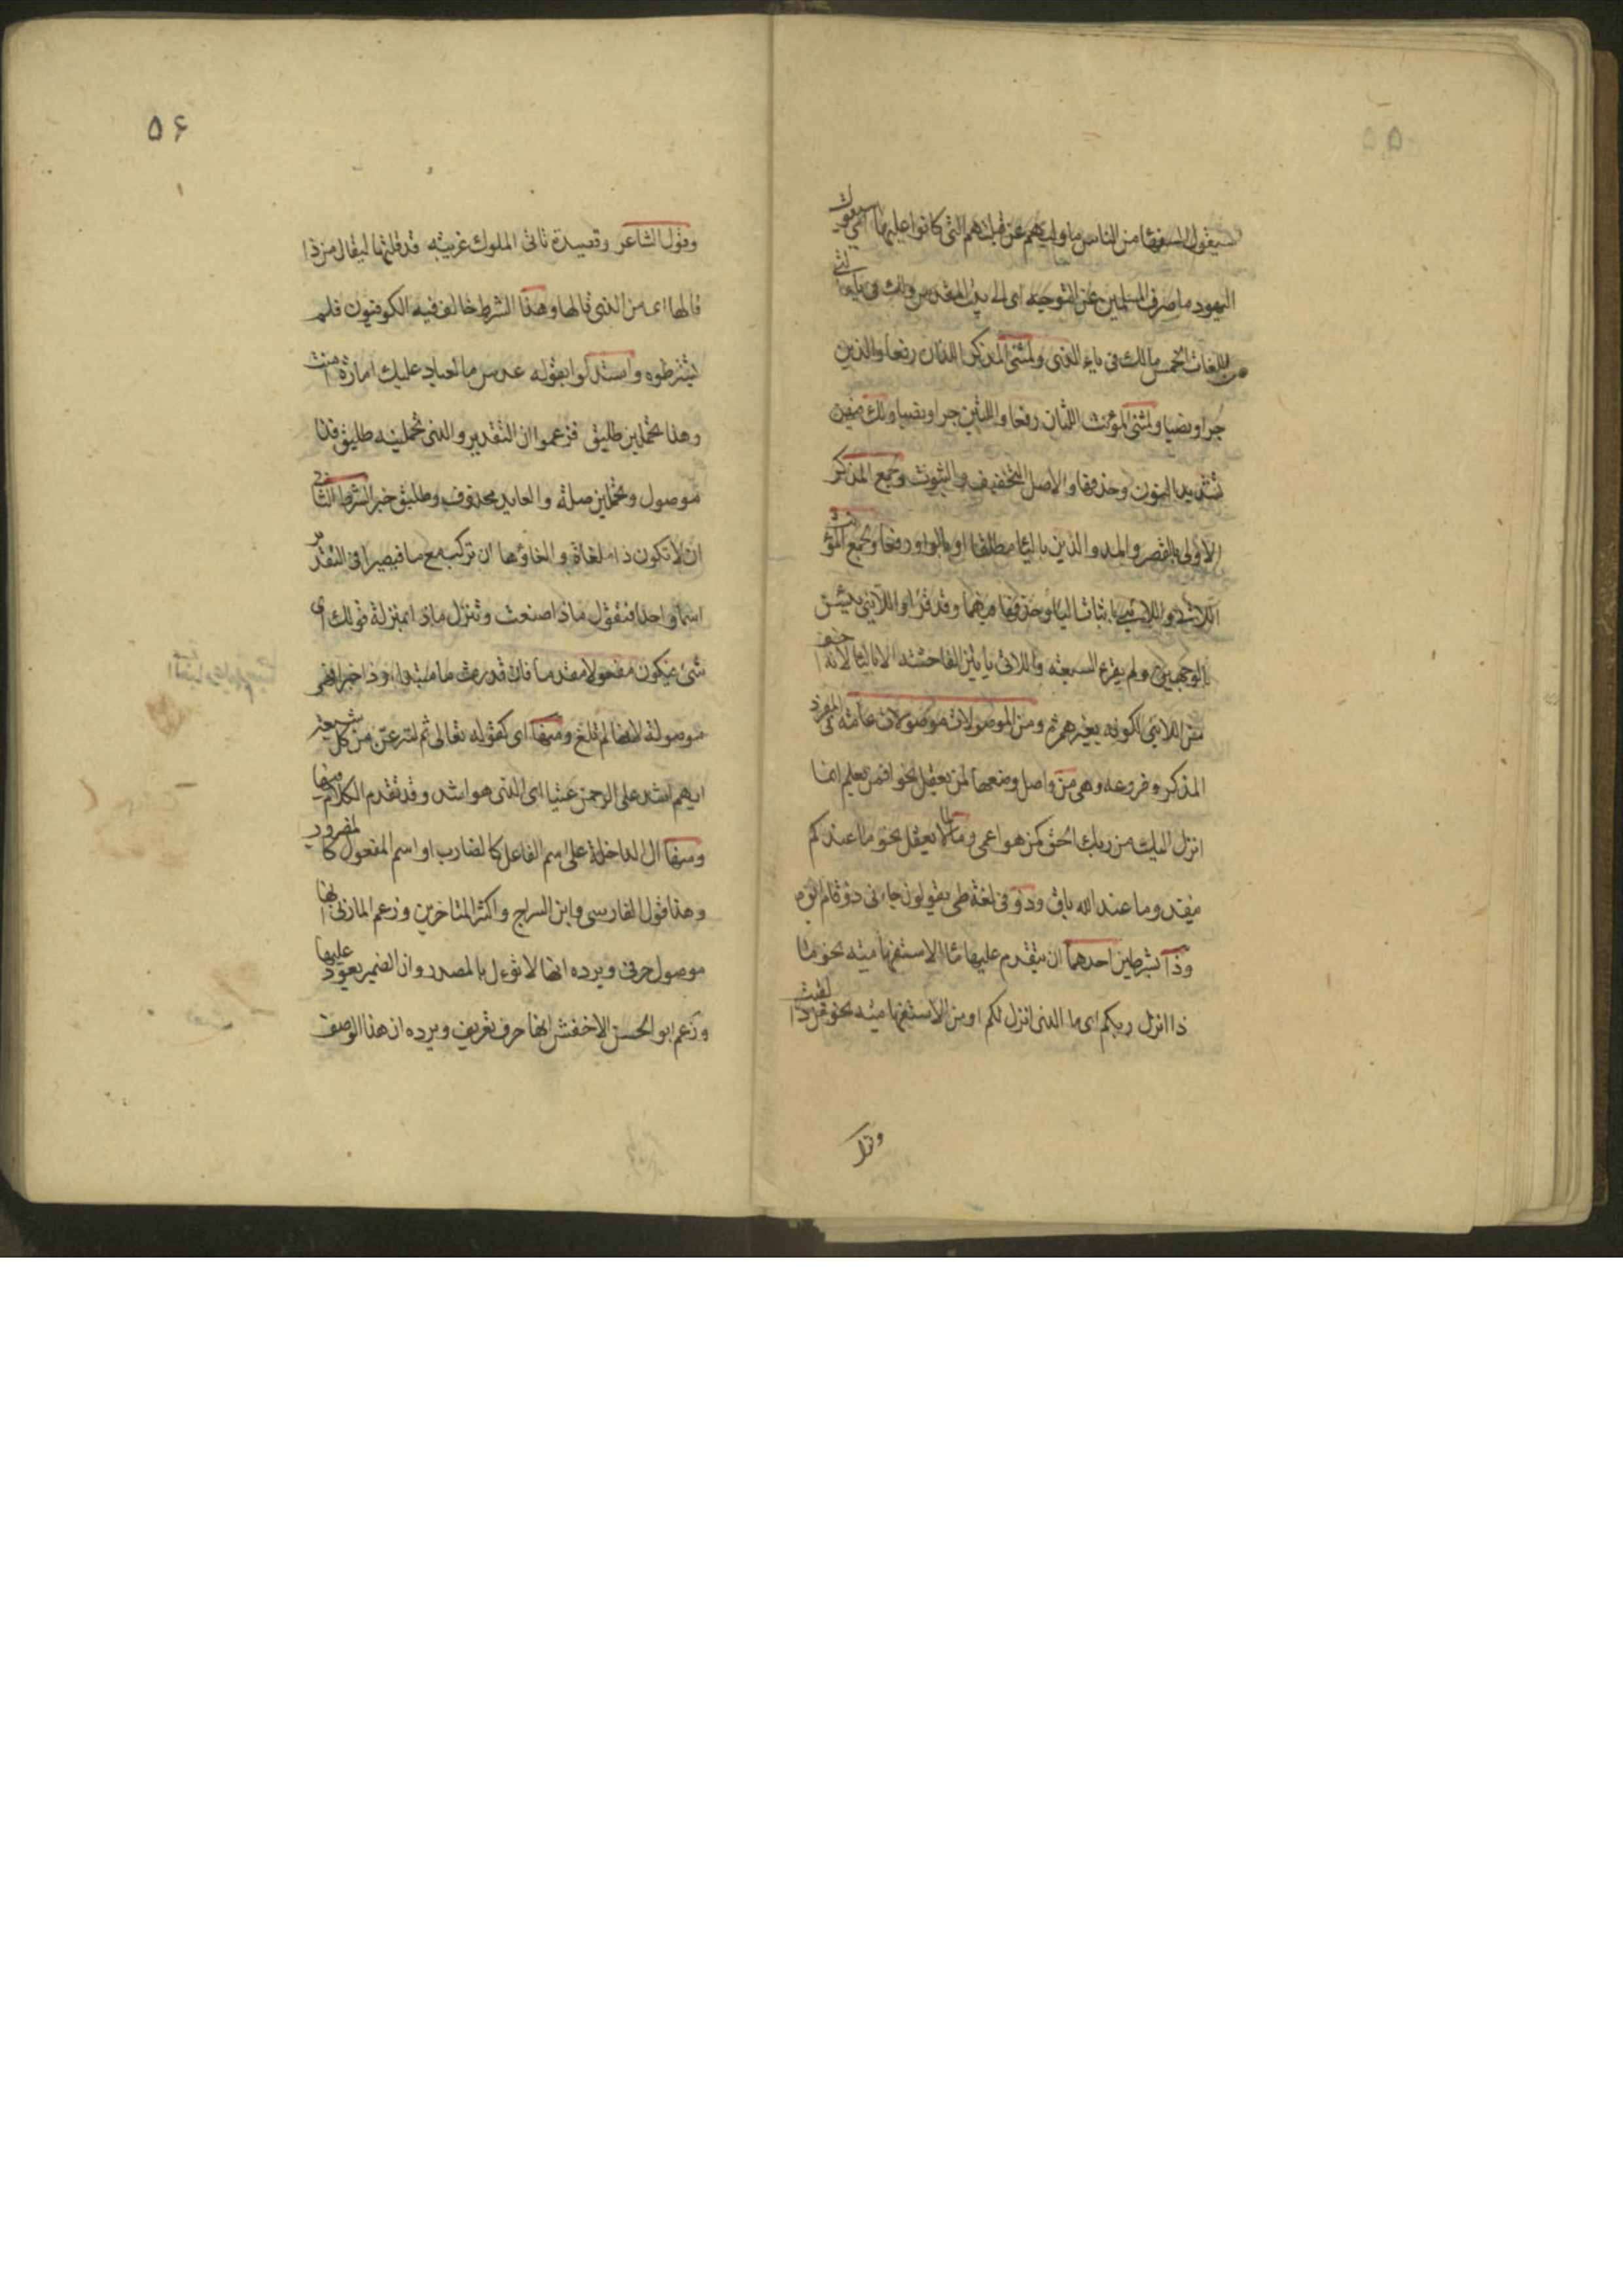 ۵۵
سيقول السفهاء من الناس ما وليهم عن قبلتهم التى كانوا عليها اى سيقول
اليهود ما صرف المسلمين عن التوجه الى بيت المقدس ولك فى ياء التى
من اللغات الخمس مالك فى ياء الذى ولمثنى المذكر اللذان رفعا والذين
جرا ونصبا ولمثنى المؤنث اللتان رفعا واللتين جرا ونصبا ولك فيهن
تشديد النون وحذفها والاصل التخفيف والثبوت ولجمع المذكر
الاولى بالقصر والمد والذين بالياء مطلقا او بالواو رفعا ولجمع المؤنث
اللاتى واللائى باثبات الياء وحذفها فيهما وقد قرا واللائى يئسن
بالوجهين ولم يقرء السبعة واللاتى ياتين الفاحشة الا بالياء لانه اخف
من اللائى لكونه بغير همز ومن الموصولات موصولات عامة فى المفرد
المذكر وفروعه وهى من واصل وضعها لمن يعقل نحو افمن يعلم انما
انزل اليك من ربك الحق كمن هو اعمى وما لما لا يعقل نحو ما عندكم
ينفد وما عند الله باق وذو فى لغة طى يقولون جاءنى ذو قام ابوه
وذا بشرطين احدهما ان يتقدم عليها ما الاستفهامية نحو ما
ذا انزل ربكم اى ما الذى انزل لكم او من الاستفهامية نحو من ذا لقيت
وقول
۵۶
وقول الشاعر وقصيدة تاتى الملوك غريبة قد قلتها ليقال من ذا
قالها اى من الذى قالها وهذا الشرط خالف فيه الكوفيون فلم
يشترطوه واستدلوا بقوله عدس ما لعباد عليك امارة امنت
وهذا تحملين طليق فزعموا ان التقدير والذى تحملينه طليق فذا
موصول وتحملين صلة والعايد محذوف وطليق خبر الشرط الثانى
ان لا تكون ذا ملغاة والغاؤها ان تركب مع ما فيصيرا فى التقدير
اسما واحدا فتقول ماذا صنعت وتنزل ماذا بمنزلة قولك اى
شئ فيكون مفعولا مقدما فان قدرت ما مبتدا وذا خبرا فهى
موصولة لانها لم تلغ ومنها اى كقوله تعالى ثم لننزعن من كل شيعة
ايهم اشد على الرحمن عتيا اى الذى هو اشد وقد تقدم الكلام فيها
ومنها ال الداخلة على اسم الفاعل كالضارب او اسم المفعول كالمضروب
وهذا قول الفارسى وابن السراج واكثر المتاخرين وزعم المازنى انها
موصول حرفى ويرده انها لا تؤول بالمصدر وان الضمير يعود عليها
وزعم ابو الحسن الاخفش انها حرف تعريف ويرده ان هذا الوصف